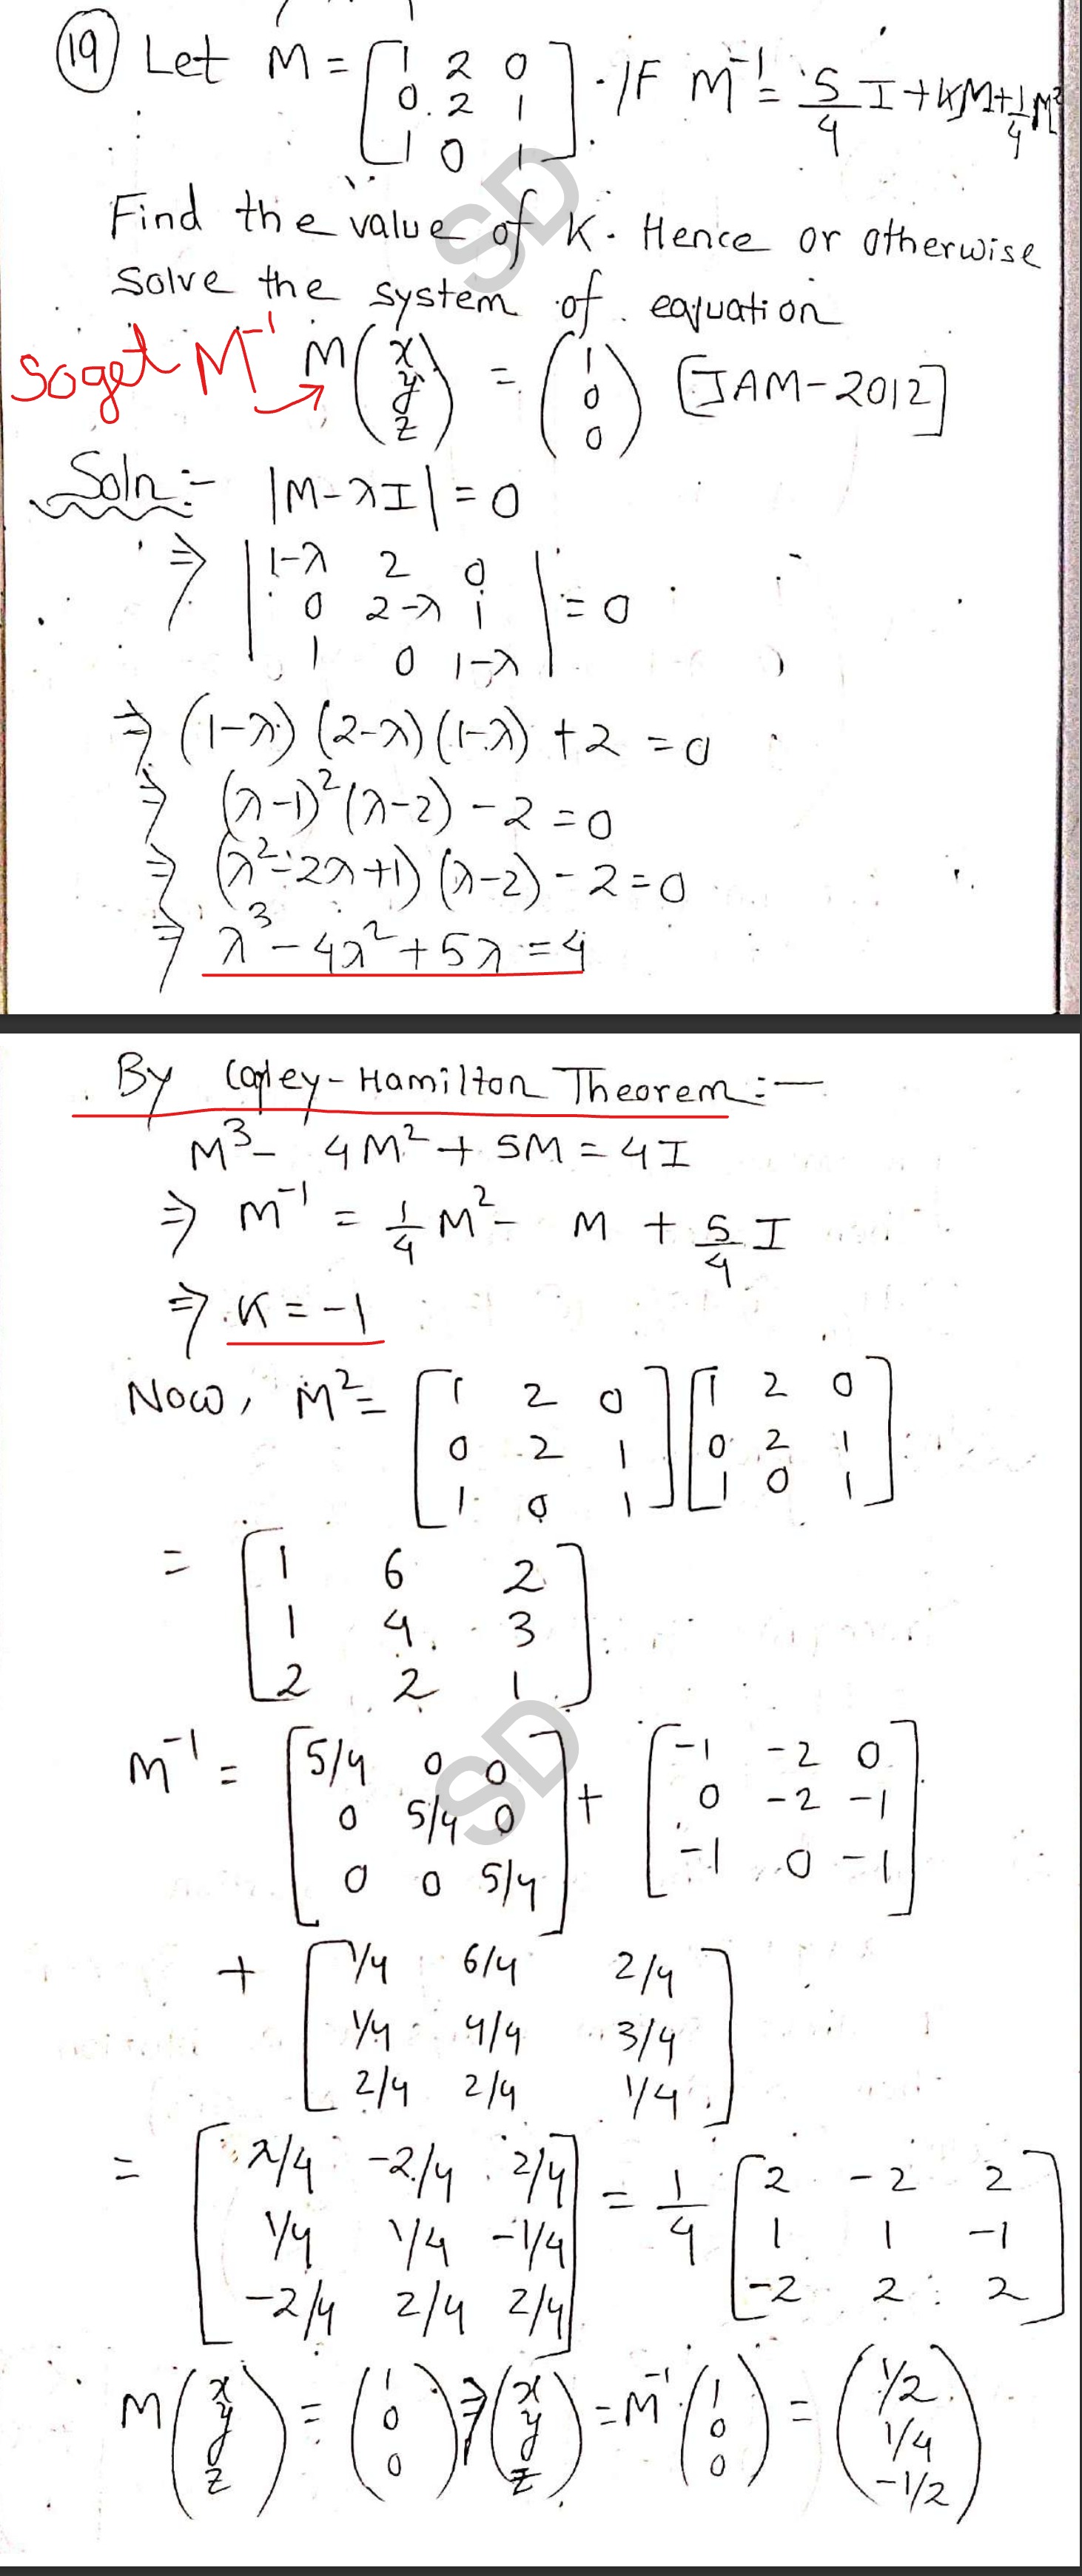 (19) Let M = [1 2 0
0 2 1
1 0 1]. IF M⁻¹ = 5/4 I + kM + 1/4 M²
Find the value of K. Hence or otherwise
Solve the system of equation
So get M⁻¹ → M (x y z) = (1 0 0) [JAM-2012]
Soln:- |M-λI| = 0
⇒ |1-λ 2 0
0 2-λ 1
1 0 1-λ| = 0
⇒ (1-λ) (2-λ) (1-λ) + 2 = 0
⇒ (λ-1)² (λ-2) - 2 = 0
⇒ (λ²-2λ+1) (λ-2) - 2 = 0
⇒ λ³ - 4λ² + 5λ = 4
By Cayley-Hamilton Theorem:-
M³ - 4M² + 5M = 4I
⇒ M⁻¹ = 1/4 M² - M + 5/4 I
⇒ K = -1
Now, M² = [1 2 0
0 2 1
1 0 1] [1 2 0
0 2 1
1 0 1]
= [1 6 2
1 4 3
2 2 1]
M⁻¹ = [5/4 0 0
0 5/4 0
0 0 5/4] + [-1 -2 0
0 -2 -1
-1 0 -1]
+ [1/4 6/4 2/4
1/4 4/4 3/4
2/4 2/4 1/4]
= [2/4 -2/4 2/4
1/4 1/4 -1/4
-2/4 2/4 2/4] = 1/4 [2 -2 2
1 1 -1
-2 2 2]
M (x y z) = (1 0 0) ⇒ (x y z) = M⁻¹ (1 0 0) = (1/2 1/4 -1/2)
SD
SD